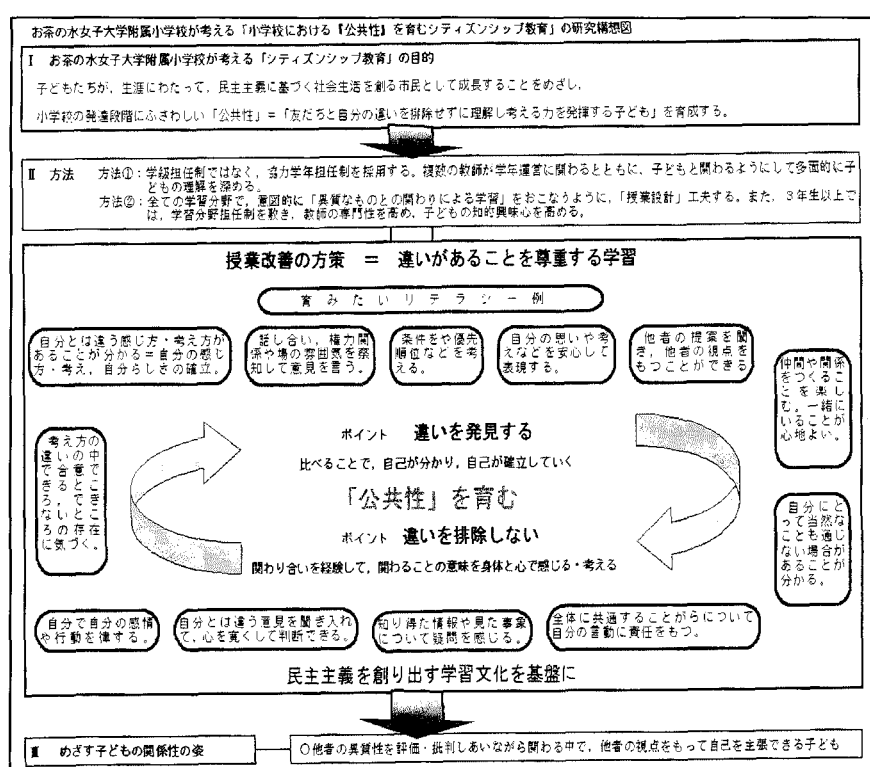 お茶の水女子大学附属小学校が考える「小学校における『公共性』を育むシティズンシップ教育」の研究構想図
Ⅰ お茶の水女子大学附属小学校が考える「シティズンシップ教育」の目的
子どもたちが，生涯にわたって，民主主義に基づく社会生活を創る市民として成長することをめざし，
小学校の発達段階にふさわしい「公共性」＝「友だちと自分の違いを排除せずに理解し考える力を発揮する子ども」を育成する。
Ⅱ 方法 方法①：学級担任制ではなく，協力学年担任制を採用する。複数の教師が学年運営に関わるとともに，子どもと関わるようにして多面的に子
どもの理解を深める。
方法②：全ての学習分野で，意図的に「異質なものとの関わりによる学習」をおこなうように，「授業設計」工夫する。また，３年生以上で
は，学習分野担任制を敷き，教師の専門性を高め，子どもの知的興味心を高める。
授業改善の方策 ＝ 違いがあることを尊重する学習
育みたいリテラシー例
自分とは違う感じ方・考え方が
あることが分かる＝自分の感じ
方・考え，自分らしさの確立。
話し合い，権力関
係や場の雰囲気を察
知して意見を言う。
条件をや優先
順位などを考
える。
自分の思いや考
えなどを安心して
表現する。
他者の提案を聞
き，他者の視点を
もつことができる
仲間や関係
をつくるこ
とを楽し
む。一緒に
いることが
心地よい。
考え方の
違いの中
で合意で
きるとこ
ろ，でき
ないとこ
ろの存在
に気づく。
ポイント 違いを発見する
比べることで，自己が分かり，自己が確立していく
「公共性」を育む
ポイント 違いを排除しない
関わり合いを経験して，関わることの意味を身体と心で感じる・考える
自分にと
って当然な
ことも通じ
ない場合が
あることが
分かる。
自分で自分の感情
や行動を律する。
自分とは違う意見を聞き入れ
て，心を寛くして判断できる。
知り得た情報や見た事象
について疑問を感じる。
全体に共通することがらについて
自分の言動に責任をもつ。
民主主義を創り出す学習文化を基盤に
Ⅲ めざす子どもの関係性の姿
○他者の異質性を評価・批判しあいながら関わる中で，他者の視点をもって自己を主張できる子ども